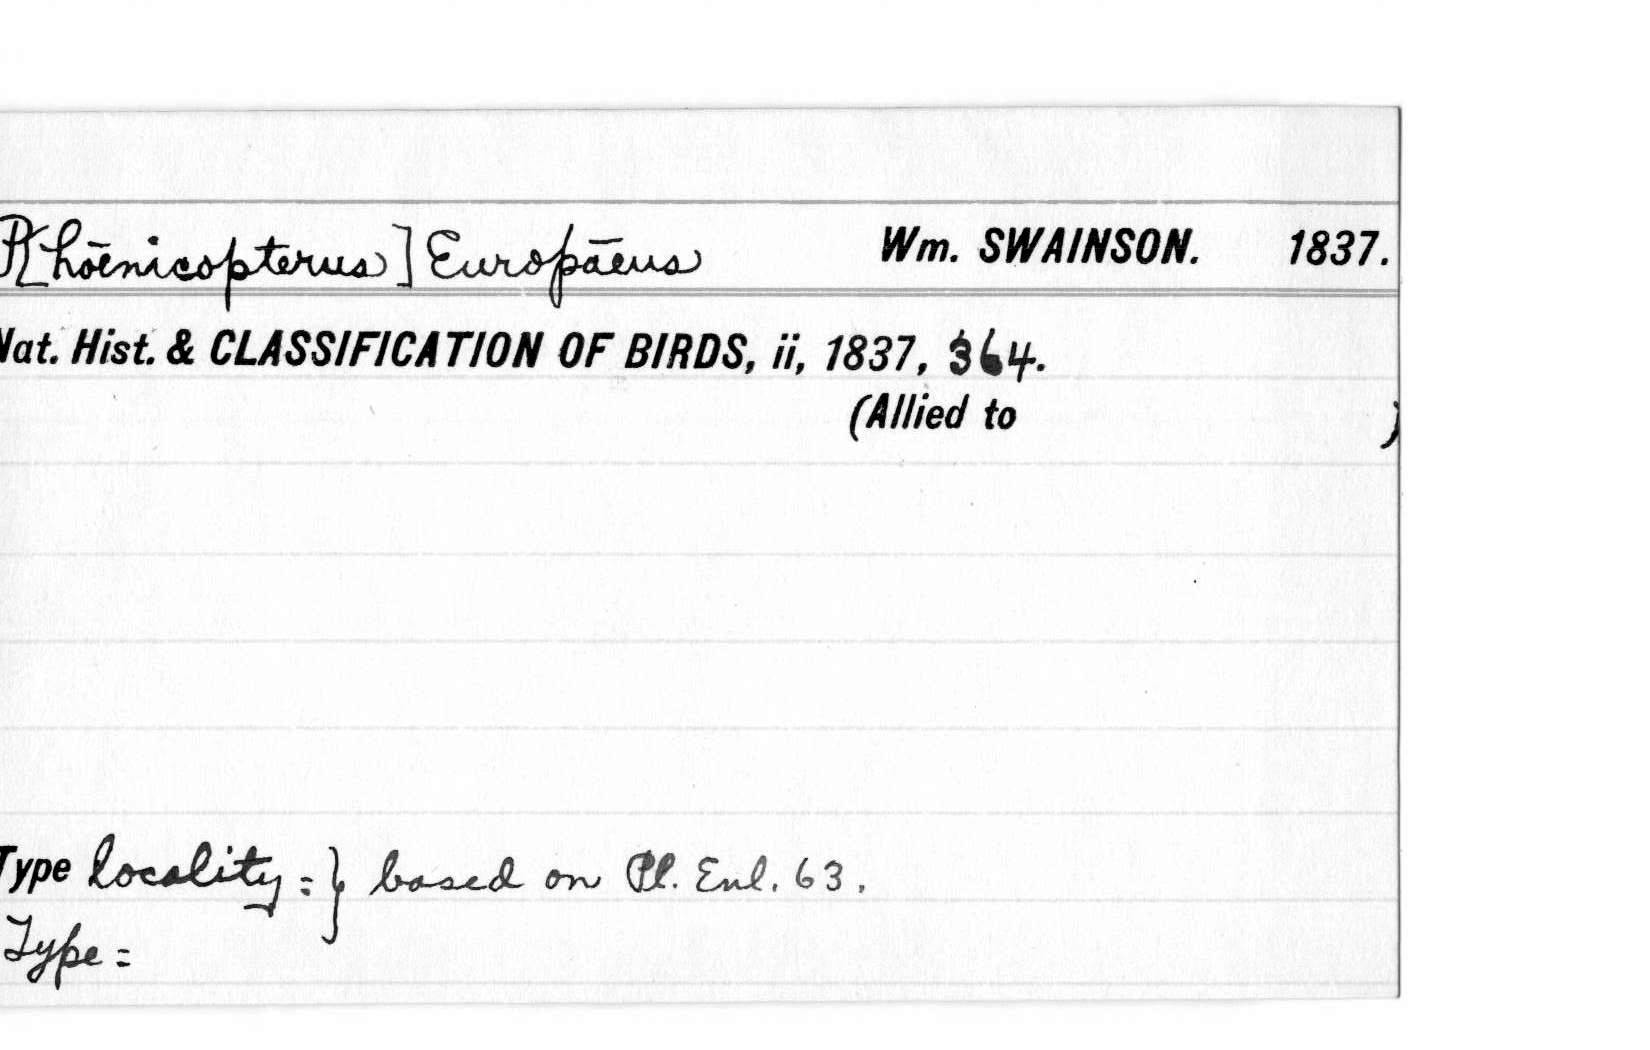 P[hōenicopterus] Europāeus Wm. SWAINSON. 1837.
Nat. Hist. & CLASSIFICATION OF BIRDS, ii, 1837, 364.
(Allied to )
Type locality = } based on Pl. Enl. 63.
Type =